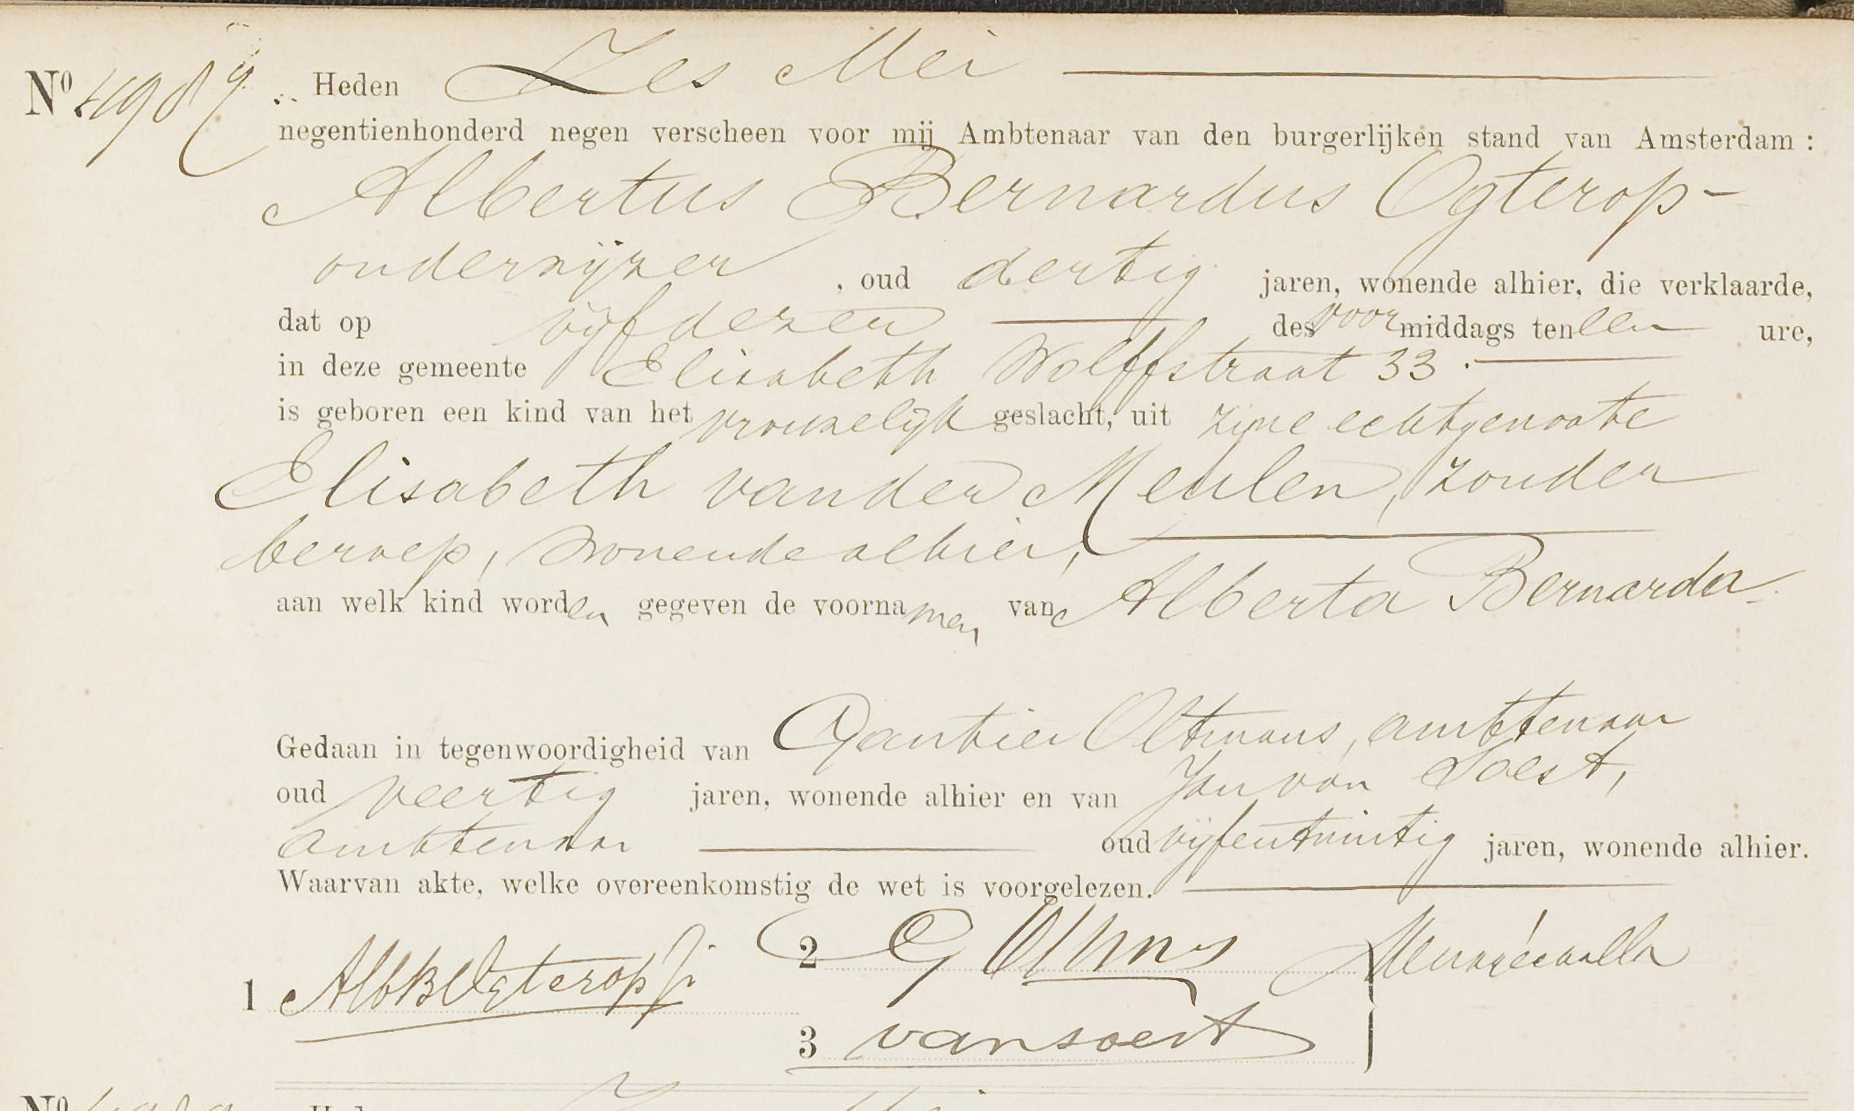 Nº 4987 Heden Zes Mei
negentienhonderd negen verscheen voor mij Ambtenaar van den burgerlijken stand van Amsterdam:
Albertus Bernardus Ogterop
onderwijzer, oud dertig jaren, wonende alhier, die verklaarde,
dat op vijf dezer des voormiddags ten een ure,
in deze gemeente Elisabeth Wolffstraat 33.
is geboren een kind van het vrouwelijk geslacht, uit zijne echtgenoote
Elisabeth van der Meulen, zonder
beroep, wonende alhier,
aan welk kind worden gegeven de voornamen van Alberta Bernarda.
Gedaan in tegenwoordigheid van Oltmans, ambtenaar
oud veertig jaren, wonende alhier en van Jan van Soest,
ambtenaar oud vijfentwintig jaren, wonende alhier.
Waarvan akte, welke overeenkomstig de wet is voorgelezen.
1 AlbBOgterop Jr. 2 G Oltmans
3 van Soest
Nº Heden